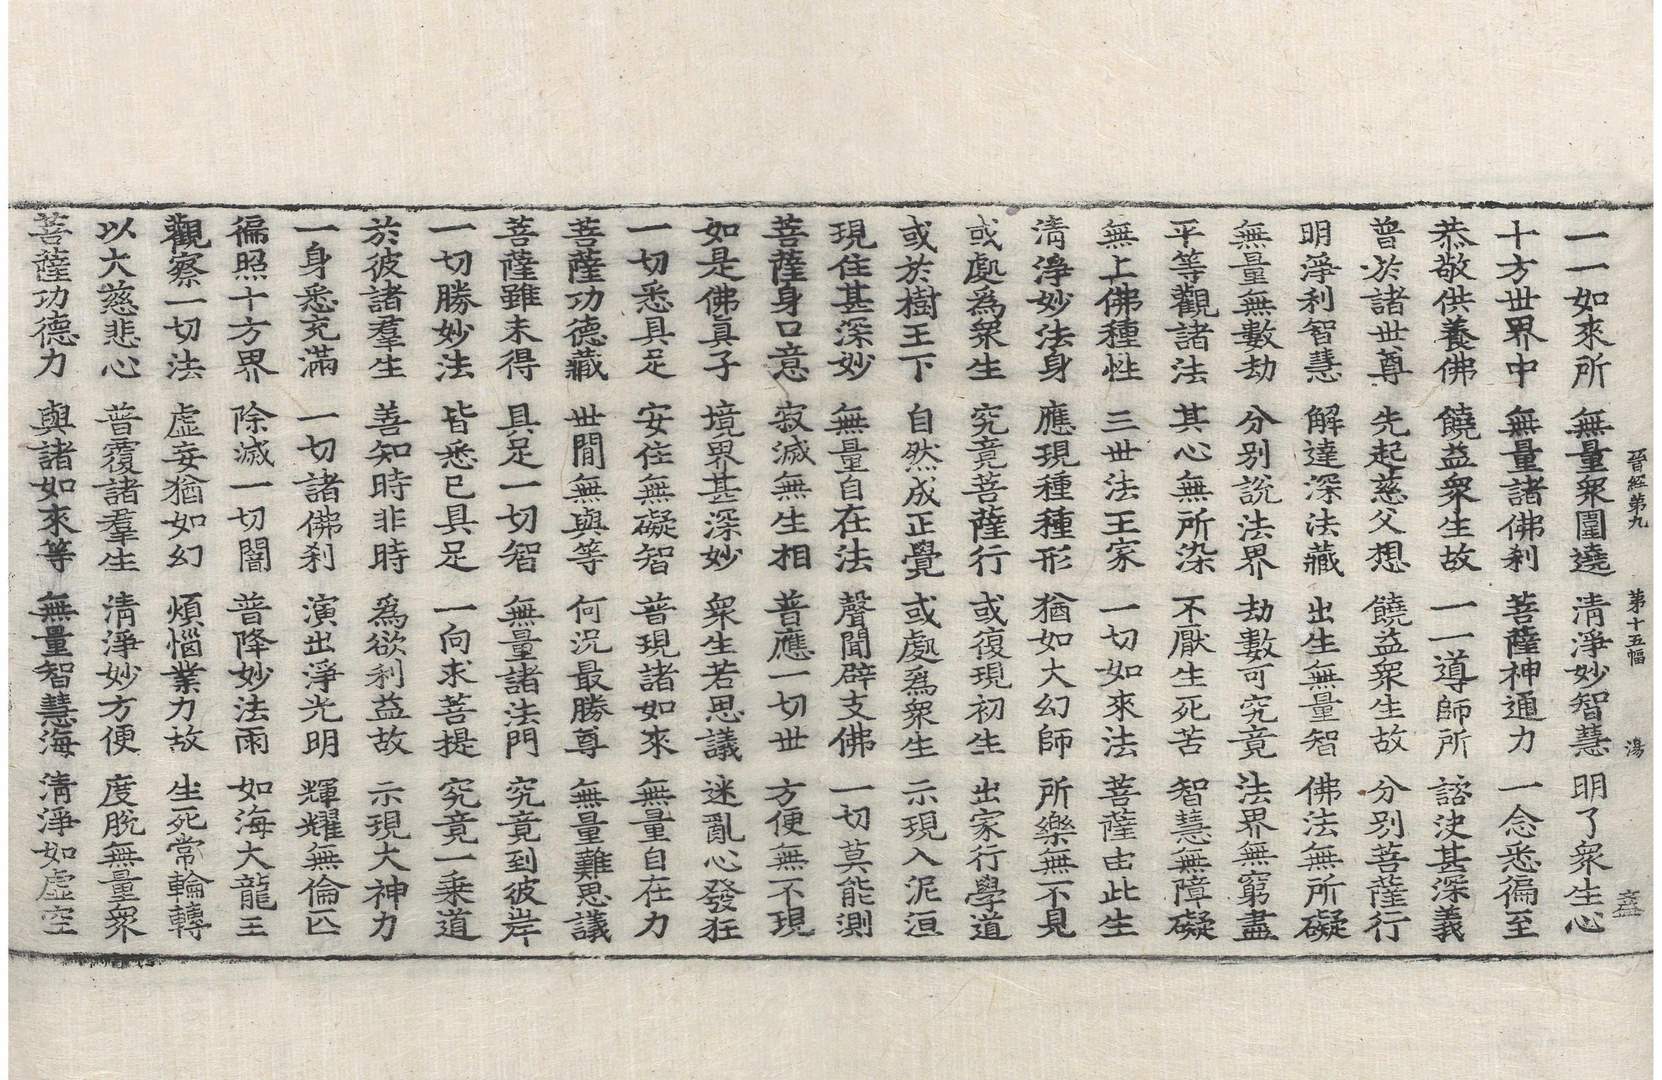 晉經第九 第十五幅 湯 壹
一一如來所 無量衆圍遶 清淨妙智慧 明了衆生心
十方世界中 無量諸佛刹 菩薩神通力 一念悉徧至
恭敬供養佛 饒益衆生故 一一導師所 諮决甚深義
曾於諸世尊 先起慈父想 饒益衆生故 分別菩薩行
明淨利智慧 解達深法藏 出生無量智 佛法無所礙
無量無數劫 分别說法界 劫數可究竟 法界無窮盡
平等觀諸法 其心無所染 不厭生死苦 智慧無障礙
無上佛種性 三世法王家 一切如來法 菩薩由此生
淸淨妙法身 應現種種形 猶如大幻師 所樂無不見
或處爲衆生 究竟菩薩行 或復現初生 出家行學道
或於樹王下 自然成正覺 或處爲衆生 示現入泥洹
現住甚深妙 無量自在法 聲聞辟支佛 一切莫能測
菩薩身口意 寂滅無生相 普應一切世 方便無不現
如是佛眞子 境界甚深妙 衆生若思議 迷亂心發狂
一切悉具足 安住無礙智 普現諸如來 無量自在力
菩薩功德藏 世間無與等 何況最勝尊 無量難思議
菩薩雖未得 具足一切智 無量諸法門 究竟到彼岸
一切勝妙法 皆悉已具足 一向求菩提 究竟一乗道
於彼諸羣生 善知時非時 爲欲利益故 示現大神力
一身悉充滿 一切諸佛刹 演出淨光明 輝耀無倫匹
徧照十方界 除滅一切闇 普降妙法雨 如海大龍王
觀察一切法 虛妄猶如幻 煩惱業力故 生死常輪轉
以大慈悲心 普覆諸羣生 清淨妙方便 度脫無量衆
菩薩功德力 與諸如來等 無量智慧海 清淨如虛空